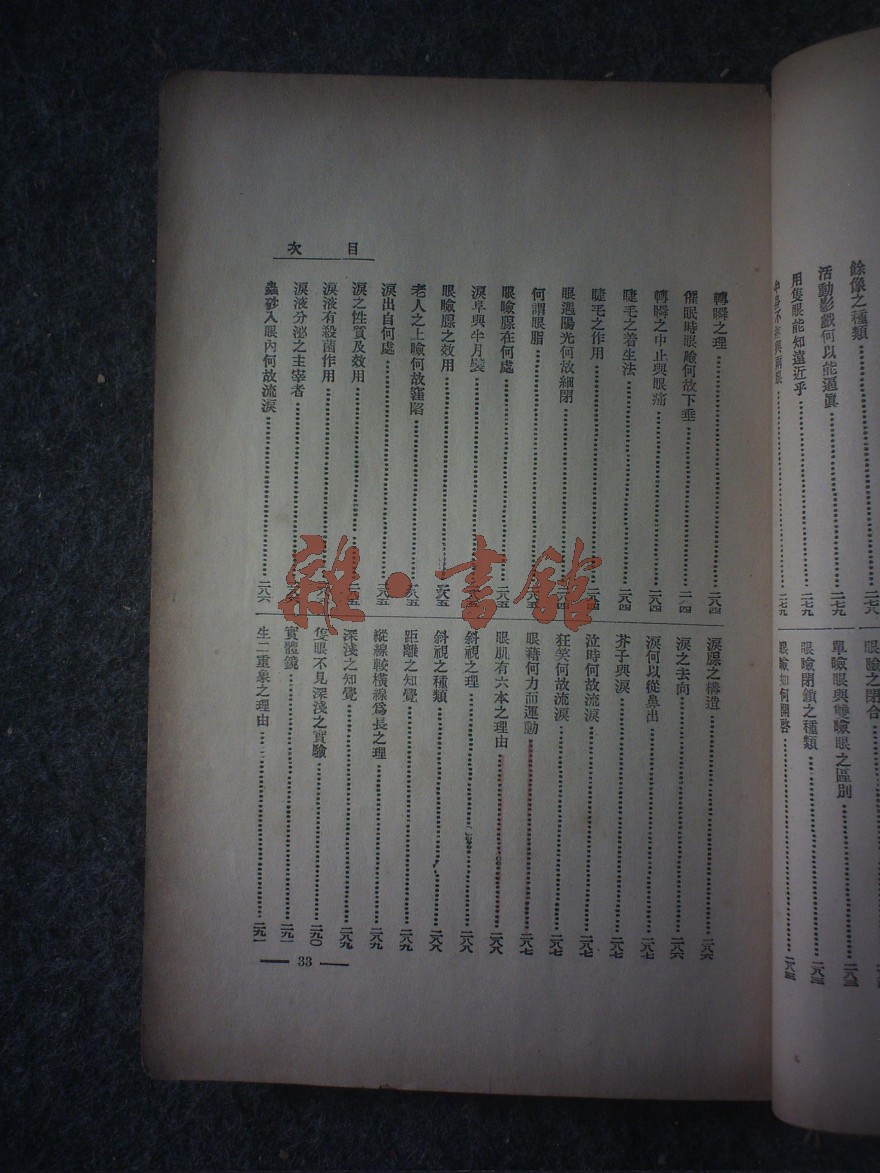 餘像之種類……二七八
活動影戲何以能逼眞……二七九
用隻眼能知遠近乎……二七九
瞼之閉合
單瞼眼與雙瞼眼之區別……二八三
眼瞼閉鎖之種類……二八三
眼瞼如何開啓……二八三
目次
轉瞬之理……二八四
催眠時眼瞼何故下垂……二八四
轉瞬之中止與眼痛……二八四
睫毛之着生法……二八四
睫毛之作用……二八四
眼遇陽光何故細閉……二八四
何謂眼脂……二八五
眼瞼腺在何處……二八五
淚阜與半月襞……二八五
眼瞼腺之效用……二八五
老人之上瞼何故窪陷……二八五
淚出自何處……二八五
淚之性質及效用……二八五
淚液有殺菌作用
淚液分泌之主宰者
蟲砂入眼內何故流淚……二八六
淚腺之構造……二八六
淚之去向……二八六
淚何以從鼻出……二八七
芥子與淚……二八七
泣時何故流淚……二八七
狂笑何故流淚……二八七
眼藉何力而運動……二八七
眼肌有六本之理由……二八八
斜視之理……二八八
斜視之種類……二八八
距離之知覺……二八九
縱線較橫線爲長之理……二八九
深淺之知覺……二八九
隻眼不見深淺之實驗……二九〇
實體鏡……二九一
生二重象之理由……二九一
33
雜·書館